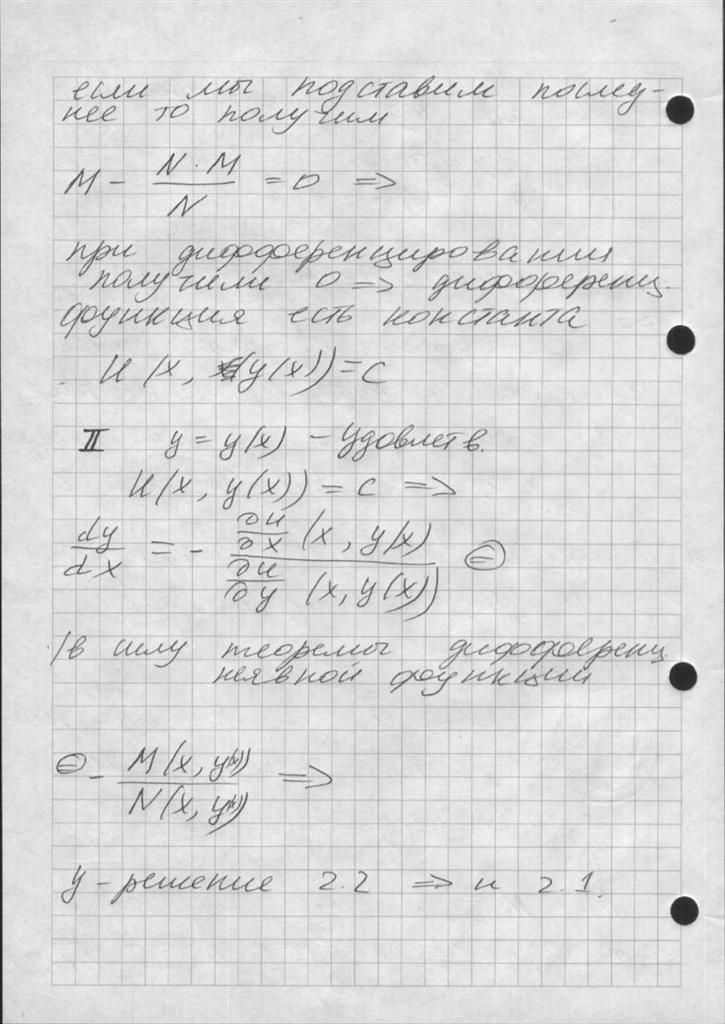 если мы подставим послед-
нее то получим
M - \frac{N \cdot M}{N} = 0 =>
при дифференцировании
получили 0 => дифференц.
функция есть константа
U(x, (y(x)) = C
II y = y(x) - удовлетв.
U(x, y(x)) = C =>
\frac{dy}{dx} = - \frac{\frac{∂u}{∂x}(x, y(x))}{\frac{∂u}{∂y}(x, y(x))} ⊜
/в силу теоремы дифференц
неявной функции
⊜ - \frac{M(x, y(x))}{N(x, y(x))} =>
y - решение 2.2 => и 2.1.